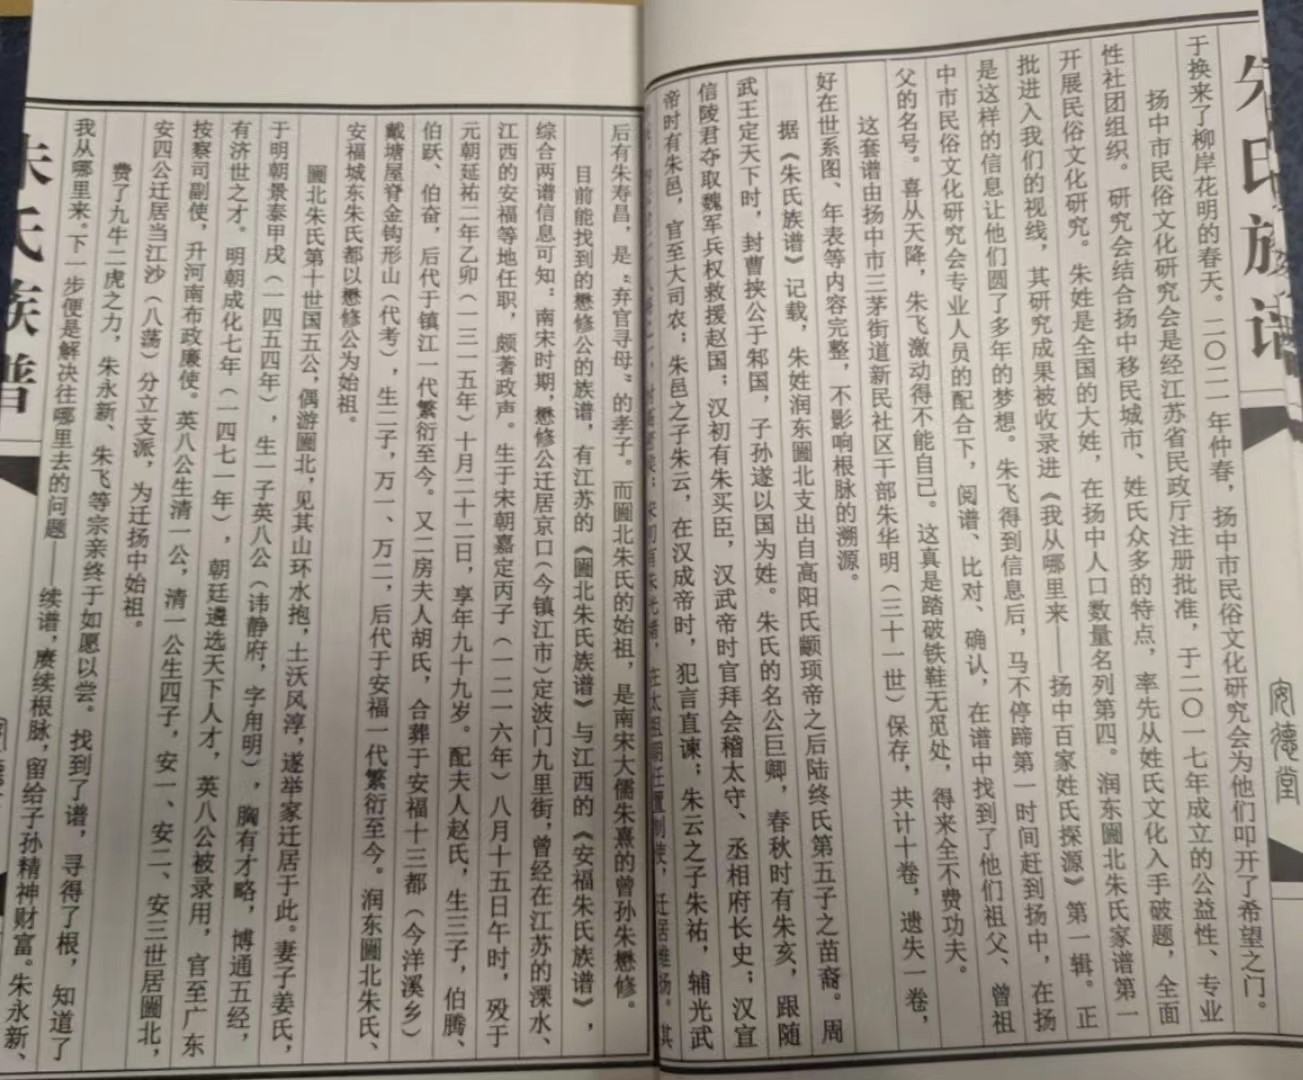 朱氏族谱
安德堂
于换来了柳岸花明的春天。二〇二一年仲春，扬中市民俗文化研究会为他们叩开了希望之门。
扬中市民俗文化研究会是经江苏省民政厅注册批准，于二〇一七年成立的公益性、专业
性社团组织。研究会结合扬中移民城市、姓氏众多的特点，率先从姓氏文化入手破题，全面
开展民俗文化研究。朱姓是全国的大姓，在扬中人口数量名列第四。润东圌北朱氏家谱第一
批进入我们的视线，其研究成果被收录进《我从哪里来——扬中百家姓氏探源》第一辑。正
是这样的信息让他们圆了多年的梦想。朱飞得到信息后，马不停蹄第一时间赶到扬中，在扬
中市民俗文化研究会专业人员的配合下，阅谱、比对、确认，在谱中找到了他们祖父、曾祖
父的名号。喜从天降，朱飞激动得不能自己。这真是踏破铁鞋无觅处，得来全不费功夫。
这套谱由扬中市三茅街道新民社区干部朱华明（三十一世）保存，共计十卷，遗失一卷，
好在世系图、年表等内容完整，不影响根脉的溯源。
据《朱氏族谱》记载，朱姓润东圌北支出自高阳氏颛顼帝之后陆终氏第五子之苗裔。周
武王定天下时，封曹挟公于邾国，子孙遂以国为姓。朱氏的名公巨卿，春秋时有朱亥，跟随
信陵君夺取魏军兵权救援赵国；汉初有朱买臣，汉武帝时官拜会稽太守、丞相府长史；汉宣
帝时有朱邑，官至大司农；朱邑之子朱云，在汉成帝时，犯言直谏；朱云之子朱祐，辅光武
后有朱寿昌，是“弃官寻母”的孝子。而圌北朱氏的始祖，是南宋大儒朱熹的曾孙朱懋修。
目前能找到的懋修公的族谱，有江苏的《圌北朱氏族谱》与江西的《安福朱氏族谱》，
综合两谱信息可知：南宋时期，懋修公迁居京口（今镇江市）定波门九里街，曾经在江苏的溧水、
江西的安福等地任职，颇著政声。生于宋朝嘉定丙子（一二一六年）八月十五日午时，殁于
元朝延祐二年乙卯（一三一五年）十月二十二日，享年九十九岁。配夫人赵氏，生三子，伯腾、
伯跃、伯奋，后代于镇江一代繁衍至今。又二房夫人胡氏，合葬于安福十三都（今洋溪乡）
戴塘屋脊金钩形山（代考），生二子，万一、万二，后代于安福一代繁衍至今。润东圌北朱氏、
安福城东朱氏都以懋修公为始祖。
圌北朱氏第十世国五公，偶游圌北，见其山环水抱，土沃风淳，遂举家迁居于此。妻子姜氏，
于明朝景泰甲戌（一四五四年），生一子英八公（讳静府，字用明），胸有才略，博通五经，
有济世之才。明朝成化七年（一四七一年），朝廷遴选天下人才，英八公被录用，官至广东
按察司副使，升河南布政廉使。英八公生清一公，清一公生四子，安一、安二、安三世居圌北，
安四公迁居当江沙（八荡）分立支派，为迁扬中始祖。
费了九牛二虎之力，朱永新、朱飞等宗亲终于如愿以尝。找到了谱，寻得了根，知道了
我从哪里来。下一步便是解决往哪里去的问题——续谱，赓续根脉，留给子孙精神财富。朱永新、
朱氏族谱